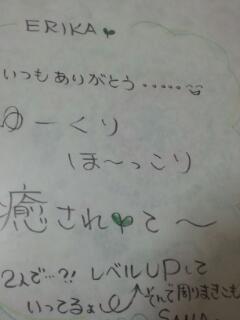 ERIKA
いつもありがとう.....
ゆーくり
ほ〜っこり
癒されて〜
2人で…?! レベルUPして
いってるょ
そんで周りまきこも